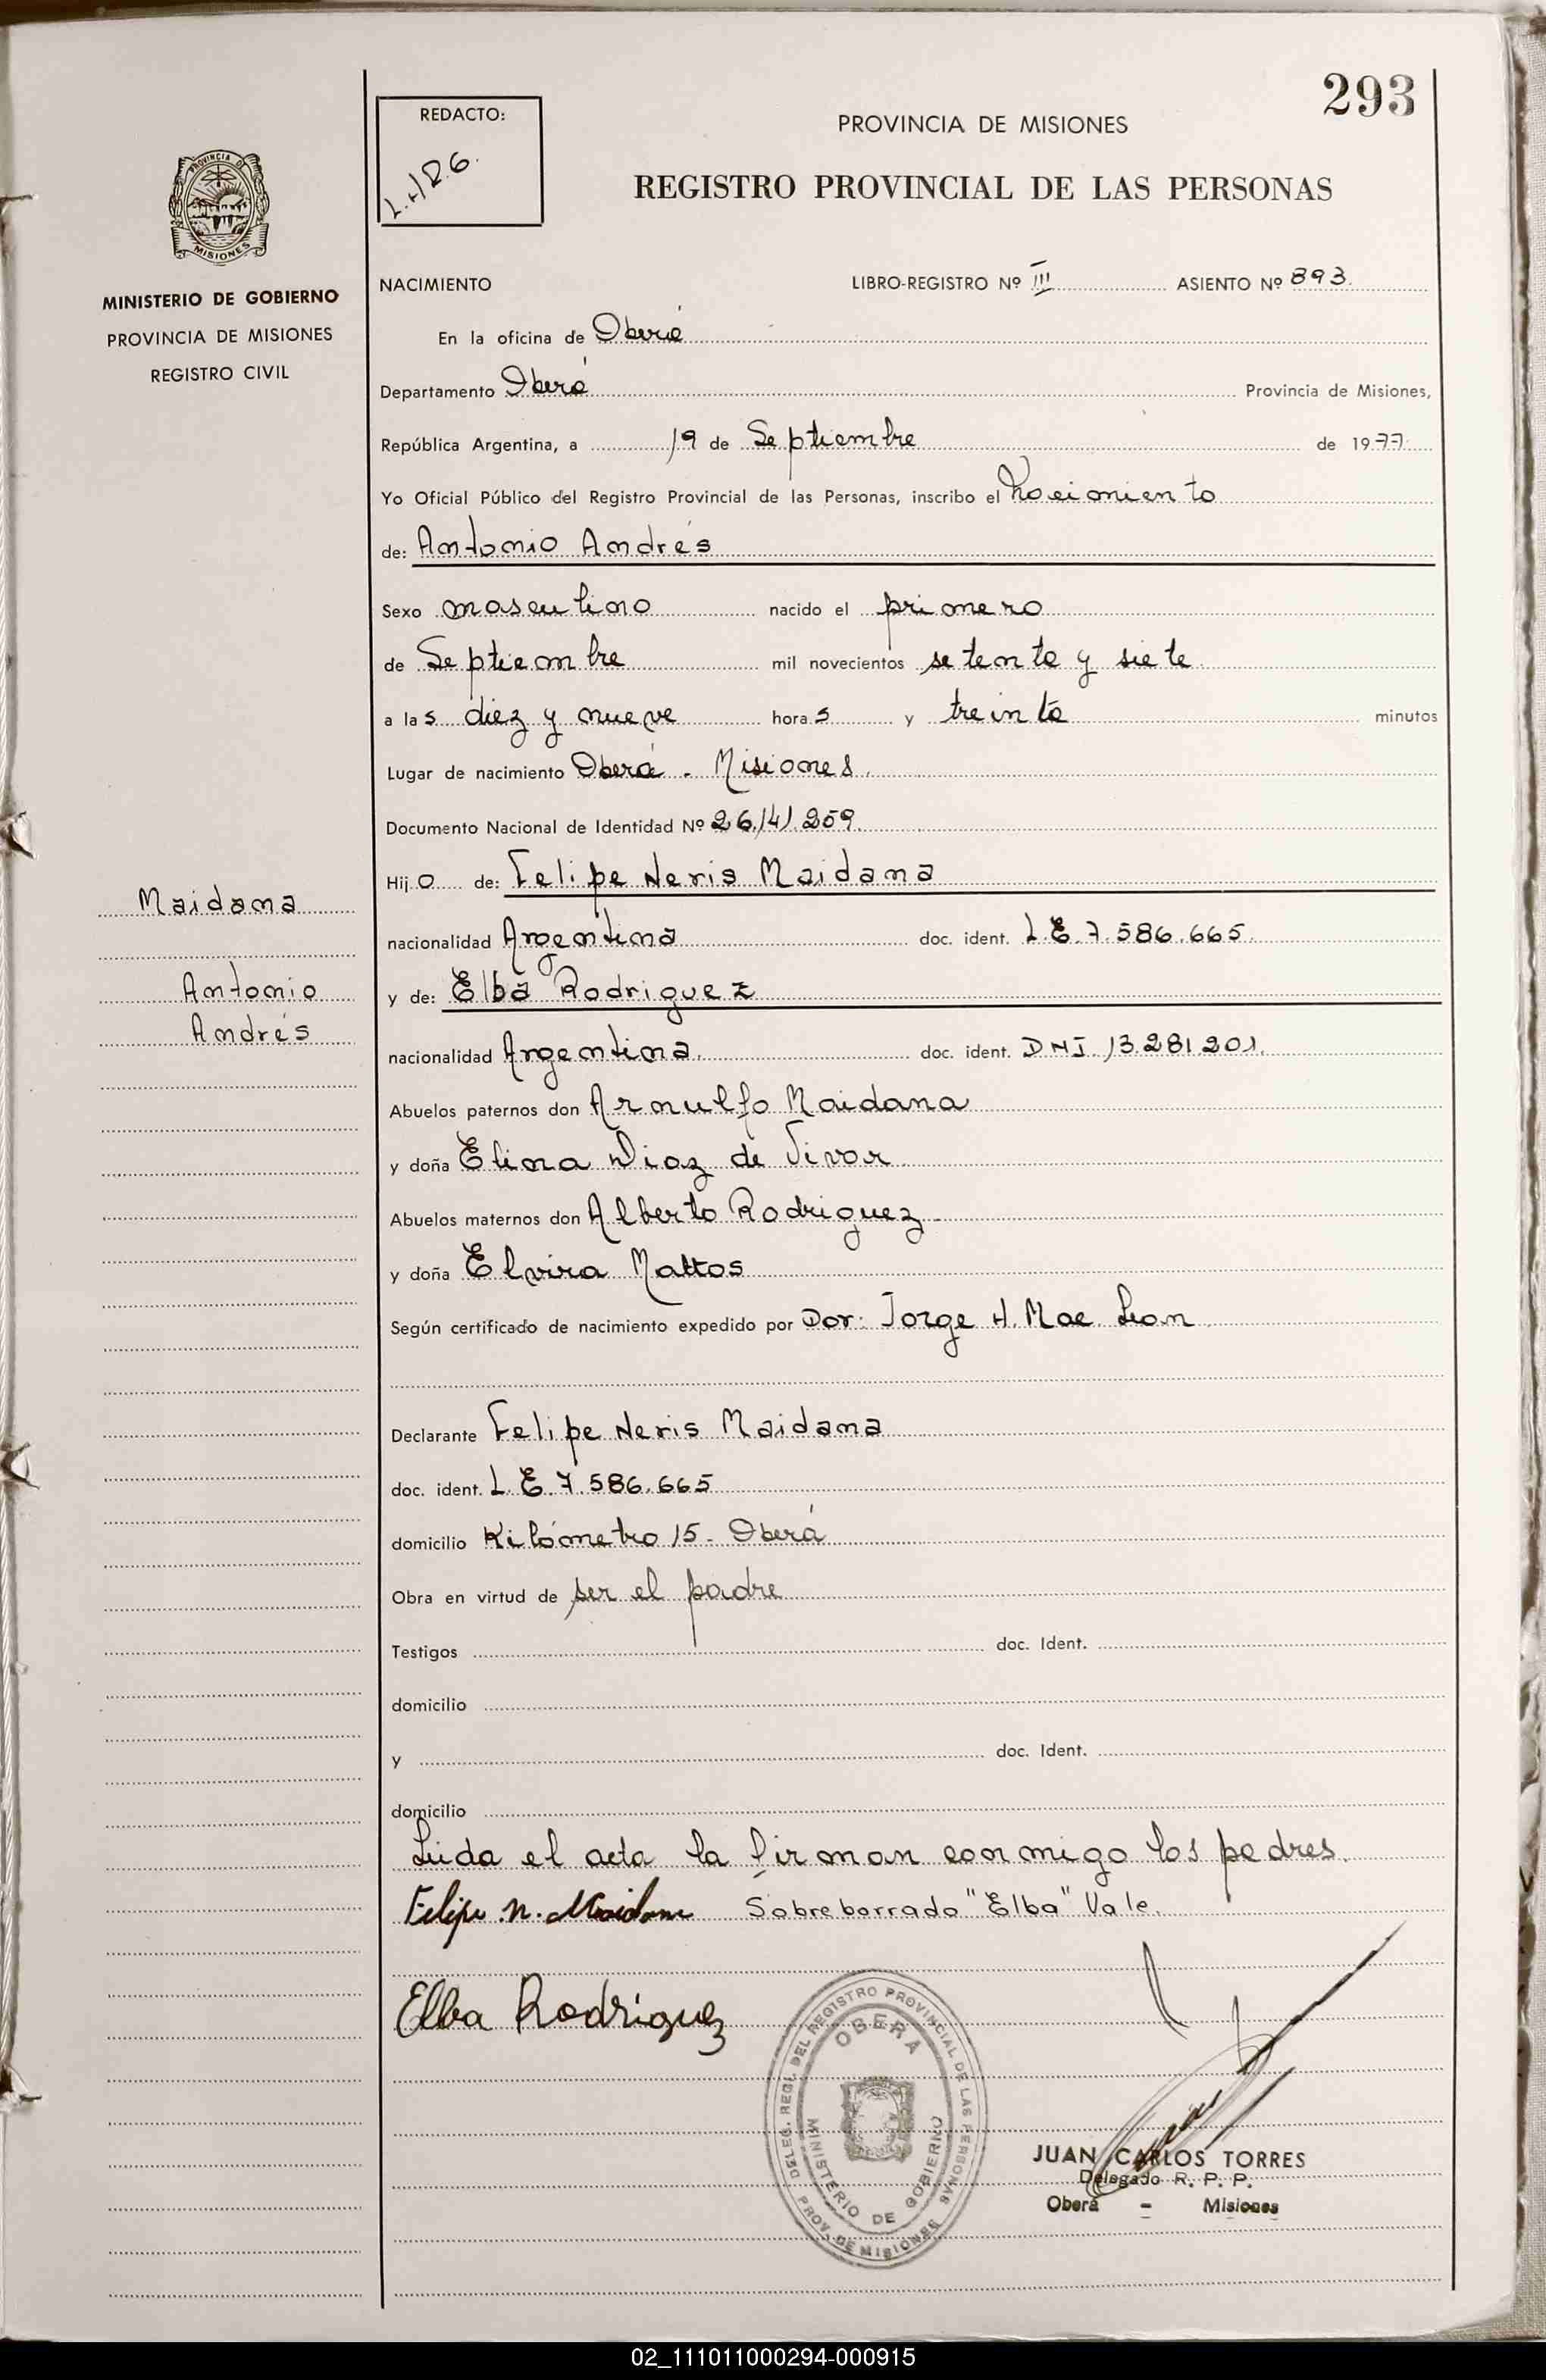 293
REDACTO:
L.H.R.G.
PROVINCIA DE MISIONES
REGISTRO PROVINCIAL DE LAS PERSONAS
PROVINCIA DE
MISIONES
MINISTERIO DE GOBIERNO
PROVINCIA DE MISIONES
REGISTRO CIVIL
NACIMIENTO LIBRO-REGISTRO Nº III ASIENTO Nº 893.
En la oficina de Oberá
Departamento Oberá Provincia de Misiones,
República Argentina, a 19 de Septiembre de 1977.
Yo Oficial Público del Registro Provincial de las Personas, inscribo el Nacimiento
de: Antonio Andrés
Sexo masculino nacido el primero
de Septiembre mil novecientos setenta y siete
a las diez y nueve horas y treinta minutos
Lugar de nacimiento Oberá - Misiones.
Documento Nacional de Identidad Nº 26.141.259.
Hijo de: Felipe Neris Maidana
Maidana
nacionalidad Argentina doc. ident. L.E. 7.586.665.
Antonio
y de: Elba Rodriguez
Andrés
nacionalidad Argentina. doc. ident. DNI 13.281.201.
Abuelos paternos don Arnulfo Maidana
y doña Elina Diaz de Vivar
Abuelos maternos don Alberto Rodriguez
y doña Elvira Mattos
Según certificado de nacimiento expedido por Dor: Jorge H. Mac Lean
Declarante Felipe Neris Maidana
doc. ident. L.E. 7.586.665
domicilio Kilómetro 15 - Oberá
Obra en virtud de ser el padre
Testigos doc. Ident.
domicilio
y doc. Ident.
domicilio
Leida el acta la firman conmigo los padres.
Felipe N. Maidana Sobreborrado "Elba" Vale.
Elba Rodriguez
DELEG. REGI. DEL REGISTRO PROVINCIAL DE LAS PERSONAS
OBERA
MINISTERIO DE GOBIERNO
PROV. DE MISIONES
JUAN CARLOS TORRES
Delegado R. P. P.
Oberá - Misiones
02_111011000294-000915